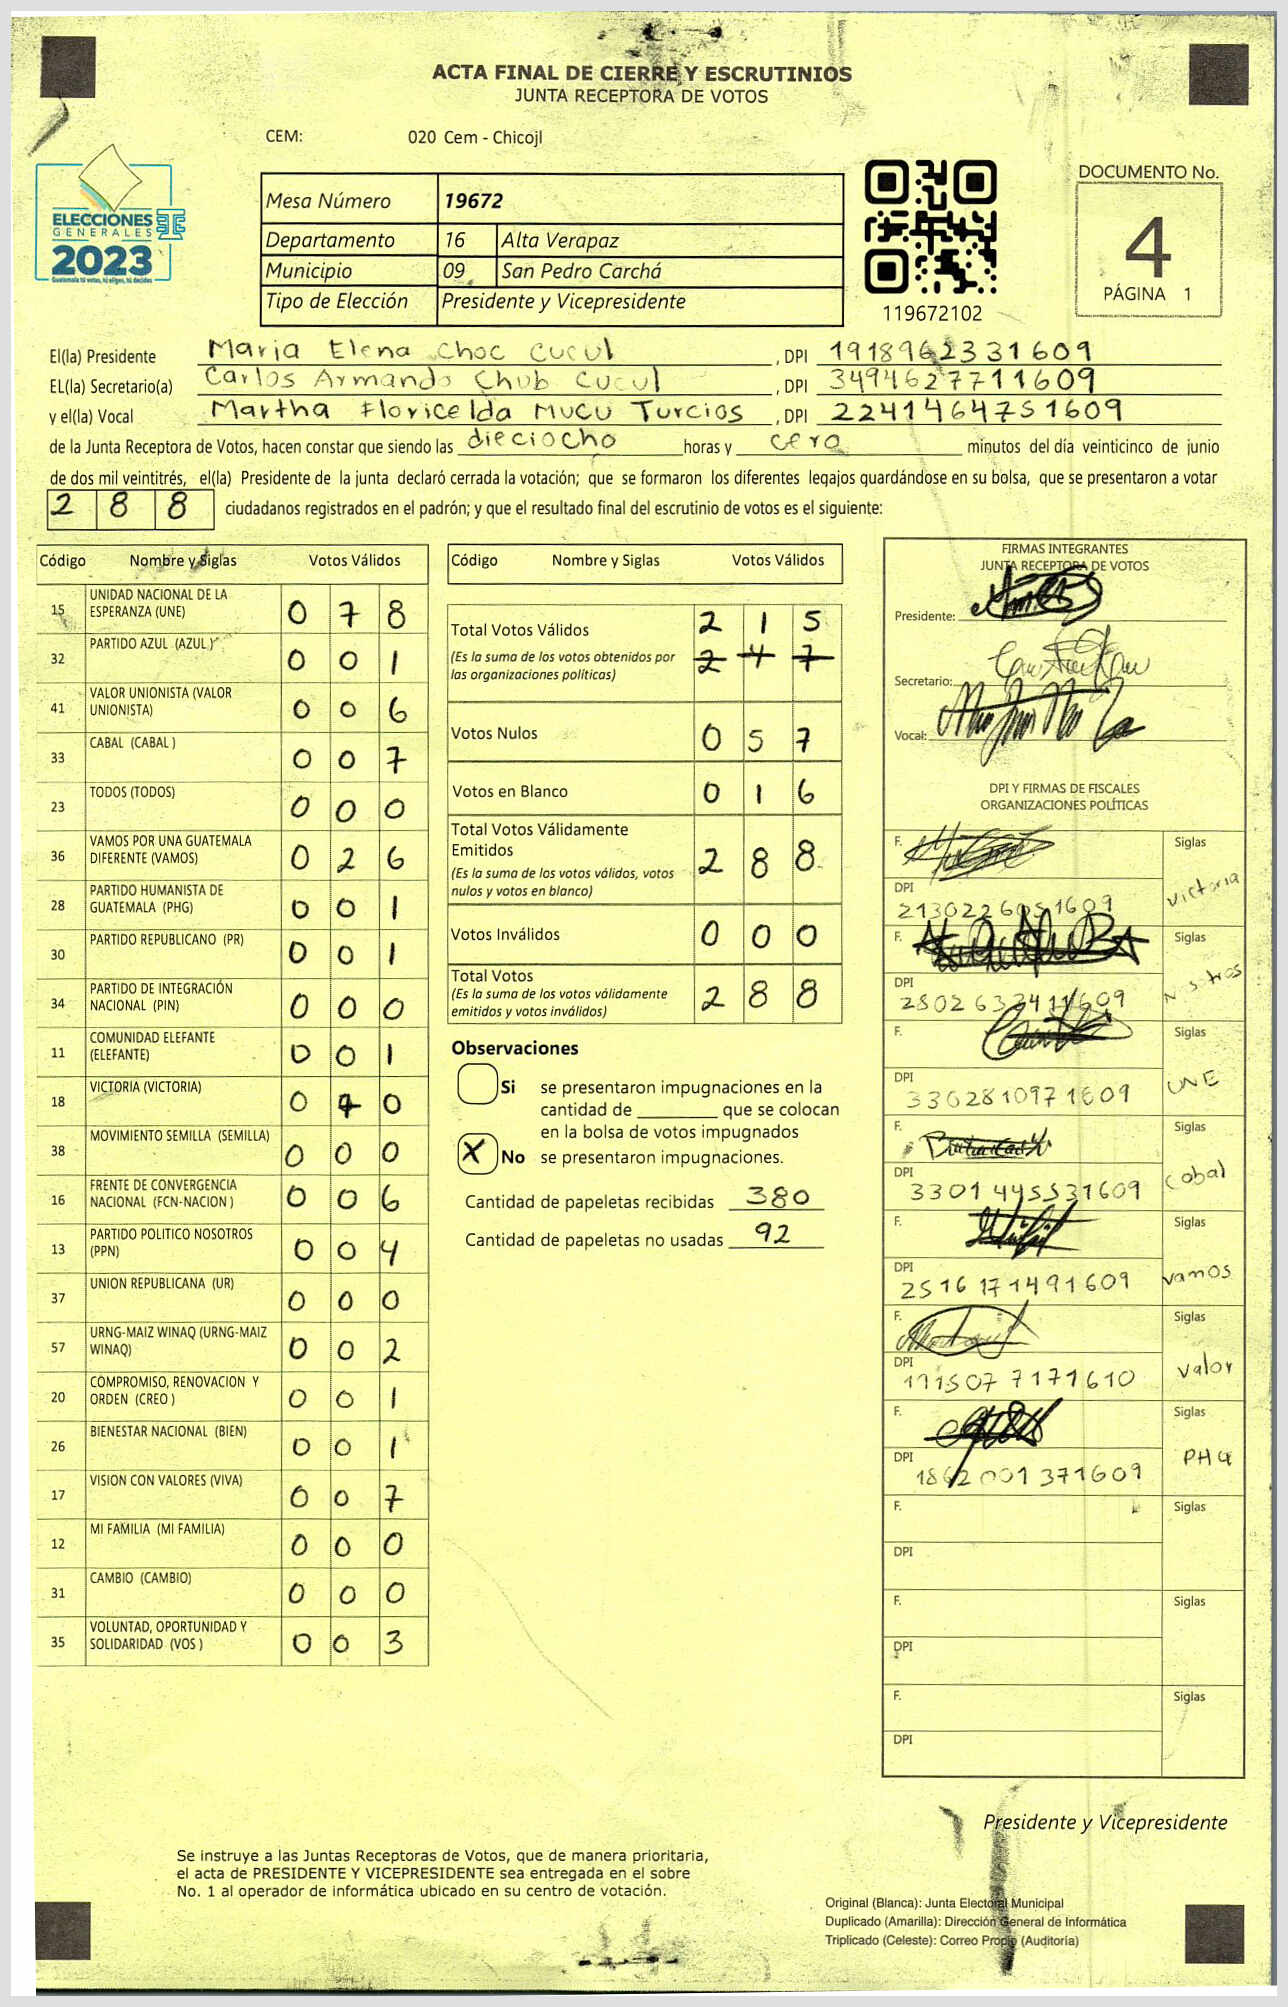 ACTA FINAL DE CIERRE Y ESCRUTINIOS
JUNTA RECEPTORA DE VOTOS
CEM: 020 Cem - Chicojl
ELECCIONES
GENERALES
2023
Guatemala tú votas, tú eliges, tú decides
Mesa Número 19672
Departamento 16 Alta Verapaz
Municipio 09 San Pedro Carchá
Tipo de Elección Presidente y Vicepresidente
119672102
DOCUMENTO No.
4
PÁGINA 1
El(la) Presidente Maria Elena Choc Cucul , DPI 1918962331609
EL(la) Secretario(a) Carlos Armando Chub Cucul , DPI 3494627711609
y el(la) Vocal Martha Floricelda Mucu Turcios , DPI 2241464751609
de la Junta Receptora de Votos, hacen constar que siendo las dieciocho horas y cero minutos del día veinticinco de junio
de dos mil veintitrés, el(la) Presidente de la junta declaró cerrada la votación; que se formaron los diferentes legajos guardándose en su bolsa, que se presentaron a votar
2 8 8 ciudadanos registrados en el padrón; y que el resultado final del escrutinio de votos es el siguiente:
Código Nombre y Siglas Votos Válidos
15 UNIDAD NACIONAL DE LA
ESPERANZA (UNE) 0 7 8
32 PARTIDO AZUL (AZUL) 0 0 1
41 VALOR UNIONISTA (VALOR
UNIONISTA) 0 0 6
33 CABAL (CABAL ) 0 0 7
23 TODOS (TODOS) 0 0 0
36 VAMOS POR UNA GUATEMALA
DIFERENTE (VAMOS) 0 2 6
28 PARTIDO HUMANISTA DE
GUATEMALA (PHG) 0 0 1
30 PARTIDO REPUBLICANO (PR) 0 0 1
34 PARTIDO DE INTEGRACIÓN
NACIONAL (PIN) 0 0 0
11 COMUNIDAD ELEFANTE
(ELEFANTE) 0 0 1
18 VICTORIA (VICTORIA) 0 7 0
38 MOVIMIENTO SEMILLA (SEMILLA) 0 0 0
16 FRENTE DE CONVERGENCIA
NACIONAL (FCN-NACION ) 0 0 6
13 PARTIDO POLITICO NOSOTROS
(PPN) 0 0 4
37 UNION REPUBLICANA (UR) 0 0 0
57 URNG-MAIZ WINAQ (URNG-MAIZ
WINAQ) 0 0 2
20 COMPROMISO, RENOVACION Y
ORDEN (CREO ) 0 0 1
26 BIENESTAR NACIONAL (BIEN) 0 0 1
17 VISION CON VALORES (VIVA) 0 0 7
12 MI FAMILIA (MI FAMILIA) 0 0 0
31 CAMBIO (CAMBIO) 0 0 0
35 VOLUNTAD, OPORTUNIDAD Y
SOLIDARIDAD (VOS ) 0 0 3
Código Nombre y Siglas Votos Válidos
Total Votos Válidos 2 1 5
(Es la suma de los votos obtenidos por
las organizaciones políticas) 2 4 7
Votos Nulos 0 5 7
Votos en Blanco 0 1 6
Total Votos Válidamente
Emitidos 2 8 8
(Es la suma de los votos válidos, votos
nulos y votos en blanco)
Votos Inválidos 0 0 0
Total Votos 2 8 8
(Es la suma de los votos válidamente
emitidos y votos inválidos)
Observaciones
Si se presentaron impugnaciones en la
cantidad de ________ que se colocan
en la bolsa de votos impugnados
X No se presentaron impugnaciones.
Cantidad de papeletas recibidas 380
Cantidad de papeletas no usadas 92
FIRMAS INTEGRANTES
JUNTA RECEPTORA DE VOTOS
Presidente:
Secretario:
Vocal:
DPI Y FIRMAS DE FISCALES
ORGANIZACIONES POLÍTICAS
F. Siglas
DPI Victoria
F. Siglas
DPI
F. Siglas
DPI 3302810971609 UNE
F. Siglas
DPI 3301445531609 Cobal
F. Siglas
DPI 2516171491609 vamos
F. Siglas
DPI 1715077171610 valor
F. Siglas
DPI PHG
F. Siglas
DPI
F. Siglas
DPI
F. Siglas
DPI
Presidente y Vicepresidente
Se instruye a las Juntas Receptoras de Votos, que de manera prioritaria,
el acta de PRESIDENTE Y VICEPRESIDENTE sea entregada en el sobre
No. 1 al operador de informática ubicado en su centro de votación.
Original (Blanca): Junta Electoral Municipal
Duplicado (Amarilla): Dirección General de Informática
Triplicado (Celeste): Correo Propio (Auditoría)